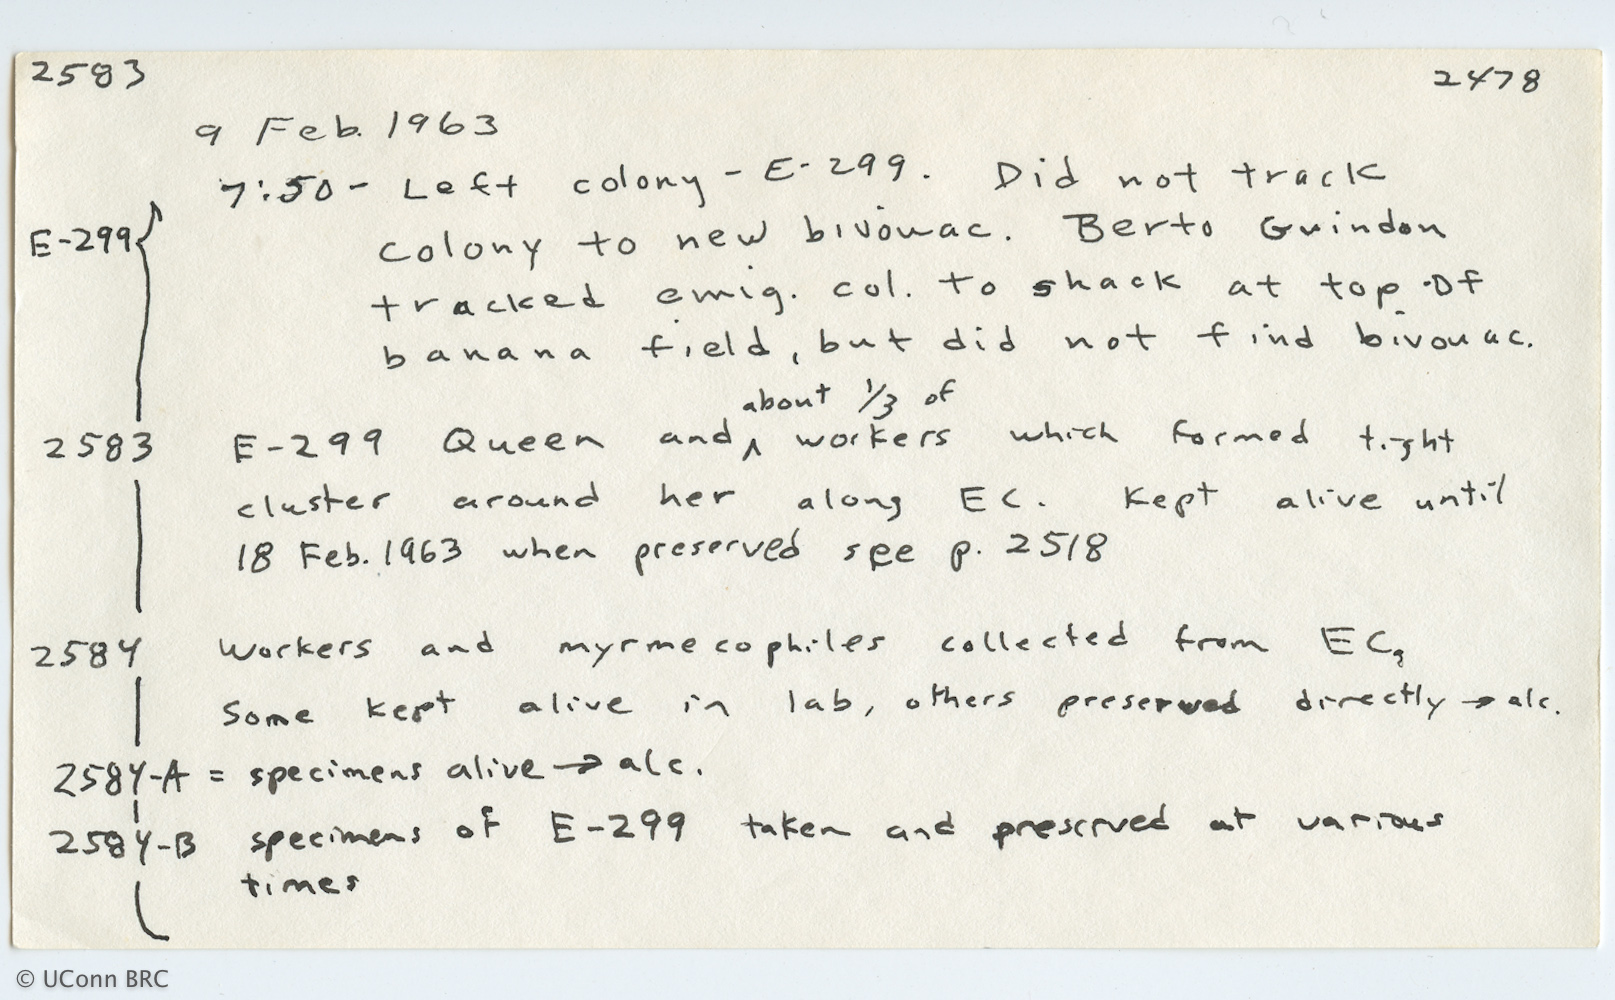 2583 2478
9 Feb. 1963
7:50 - Left colony - E-299. Did not track
E-299 { colony to new bivouac. Berto Guindon
tracked emig. col. to shack at top of
banana field, but did not find bivouac.
about 1/3 of
2583 E-299 Queen and ^ workers which formed tight
cluster around her along EC. Kept alive until
18 Feb. 1963 when preserved see p. 2518
2584 Workers and myrmecophiles collected from EC,
Some kept alive in lab, others preserved directly → alc.
2584-A = specimens alive → alc.
2584-B specimens of E-299 taken and preserved at various
times
© UConn BRC